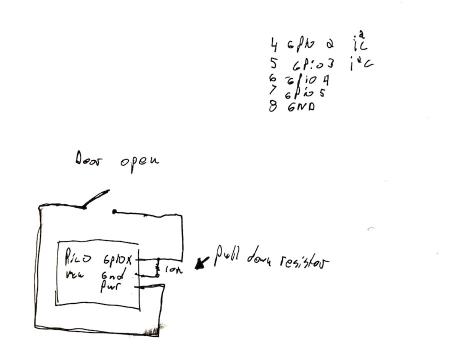 4 GPIO 2 i²c
5 GPIO3 i²c
6 GPIO4
7 GPIO5
8 GND
Door open
Pico GPIOX
Gnd
Pwr
pull down resistor